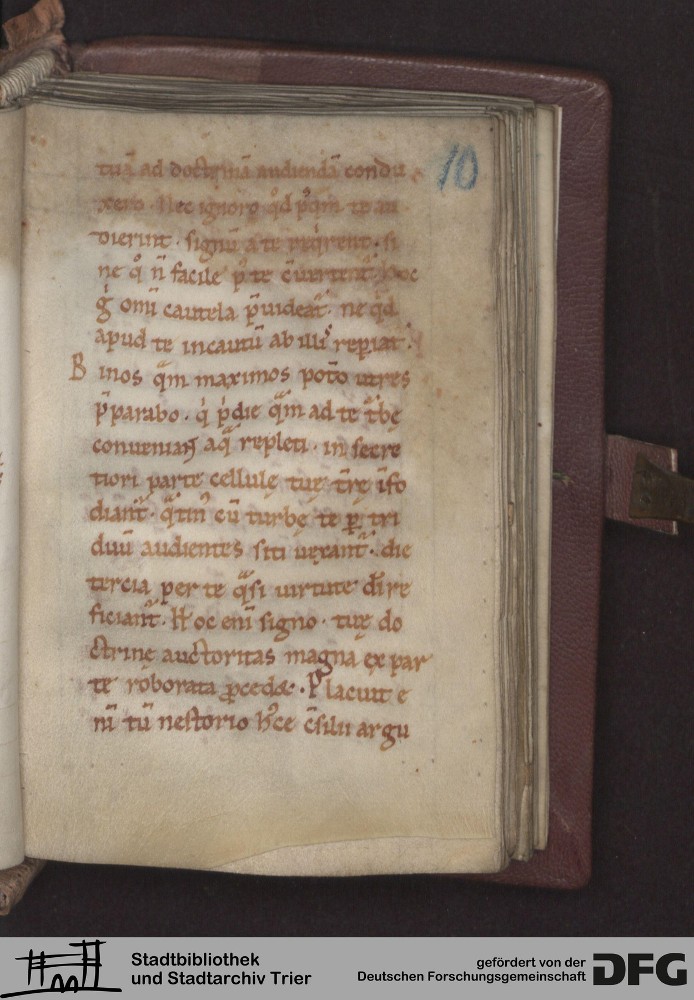 10
tuā ad doctrinā audiendā condu
xero. Nec ignoro qđ pꝰqm̄ te au
dierint. signū a te reqͥrent. si
ne qͦ n̄ facile p̄ te cūertent᷑. hoc
gͦ om̄i cautela p̄uideat᷑. ne qͥd
apud te incautū ab illiˢ repiat᷑.
B inos qͣm maximos potō utres
p̄parabo. qͥ pͥdie qͣm ad te t᷑be
conueniant aqͣ repleti. in secre
tiori parte cellulę tuę t̄rę īfo
diant᷑. qͣtinꝰ cū turbę te ꝑ tri
duū audientes siti uexant᷑. die
tercia per te qͣsi uirtute dī re
ficiant᷑. Hoc eni signo. tuę do
ctrinę auctoritas magna ex par
te roborata ꝓcedet. Placuit e
ni tū nestorio hꝰce c̄silii argu
Stadtbibliothek
und Stadtarchiv Trier
gefördert von der
Deutschen Forschungsgemeinschaft
DFG